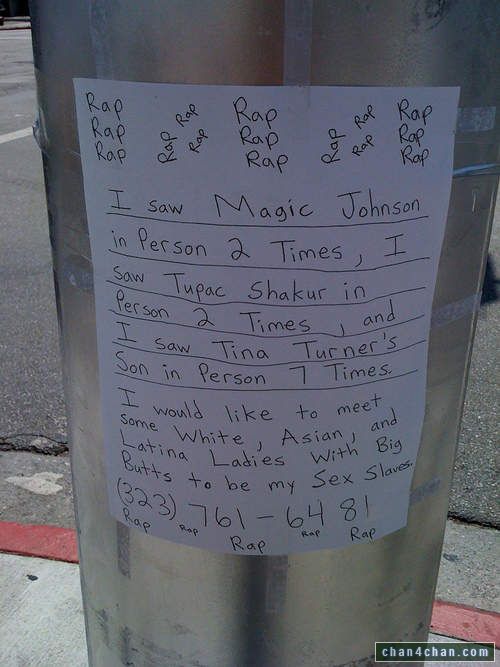 Rap Rap Rap Rap Rap
Rap Rap Rap Rap Rap Rap
Rap Rap Rap Rap
I saw Magic Johnson
in Person 2 Times, I
saw Tupac Shakur in
Person 2 Times, and
I saw Tina Turner's
Son in Person 7 Times.
I would like to meet
some White, Asian, and
Latina Ladies With Big
Butts to be my Sex Slaves.
(323) 761-6481
Rap Rap Rap Rap Rap
chan4chan.com